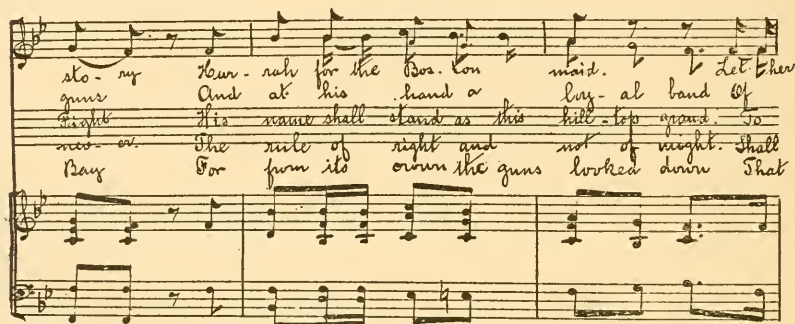 sto-ry Hur-rah for the Bos-ton maid. Let ther
guns And at his hand a loy-al band Of
Fight His name shall stand as this hill-top grand. To
nev-er. The rule of right and not of might. Shall
Bay For from its crown the guns looked down That